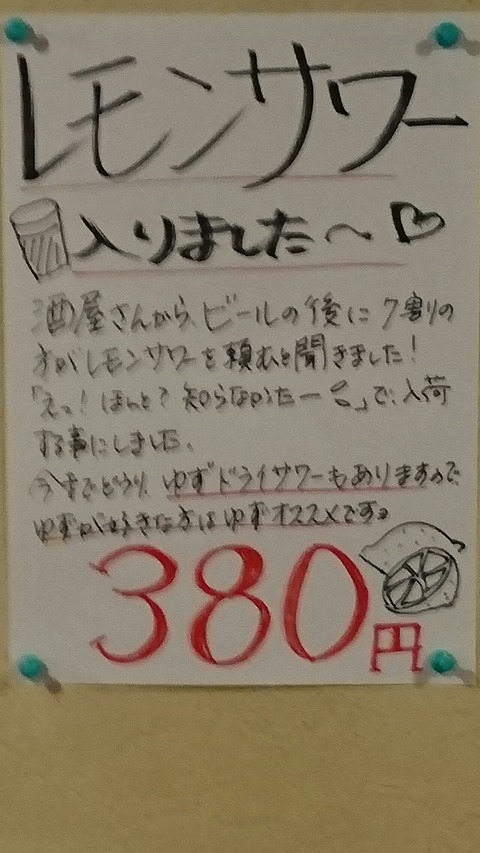 レモンサワー
入りました〜♡
酒屋さんから、ビールの後に7割りの
方がレモンサワーを頼むと聞きました!
「えっ!ほんと?知らなかったー」で、入荷
する事にしました。
今までどうり、ゆずドライサワーもありますので、
ゆずが好きな方はゆずオススメです。
380円